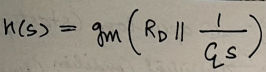 H(s) = gm ( R_D || 1 / (C_L s) )